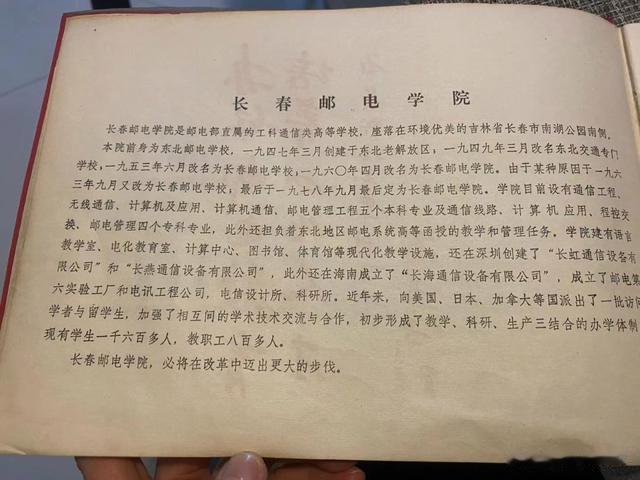 长春邮电学院
长春邮电学院是邮电部直属的工科通信类高等学校，座落在环境优美的吉林省长春市南湖公园南侧。
本院前身为东北邮电学校，一九四七年三月创建于东北老解放区；一九四九年三月改名东北交通专门
学校；一九五三年六月改名为长春邮电学校；一九六〇年四月改名为长春邮电学院。由于某种原因于一九六
三年九月又改为长春邮电学校；最后于一九七八年九月最后定为长春邮电学院。学院目前设有通信工程、
无线通信、计算机及应用、计算机通信、邮电管理工程五个本科专业及通信线路、计算机应用、程控交
换、邮电管理四个专科专业，此外还担负着东北地区邮电系统高等函授的教学和管理任务。学院建有语言
教学室、电化教育室、计算中心、图书馆、体育馆等现代化教学设施，还在深圳创建了“长虹通信设备有
限公司”和“长燕通信设备有限公司”，此外还在海南成立了“长海通信设备有限公司”，成立了邮电第
六实验工厂和电讯工程公司，电信设计所、科研所。近年来，向美国、日本、加拿大等国派出了一批访问
学者与留学生，加强了相互间的学术技术交流与合作，初步形成了教学、科研、生产三结合的办学体制
现有学生一千六百多人，教职工八百多人。
长春邮电学院，必将在改革中迈出更大的步伐。